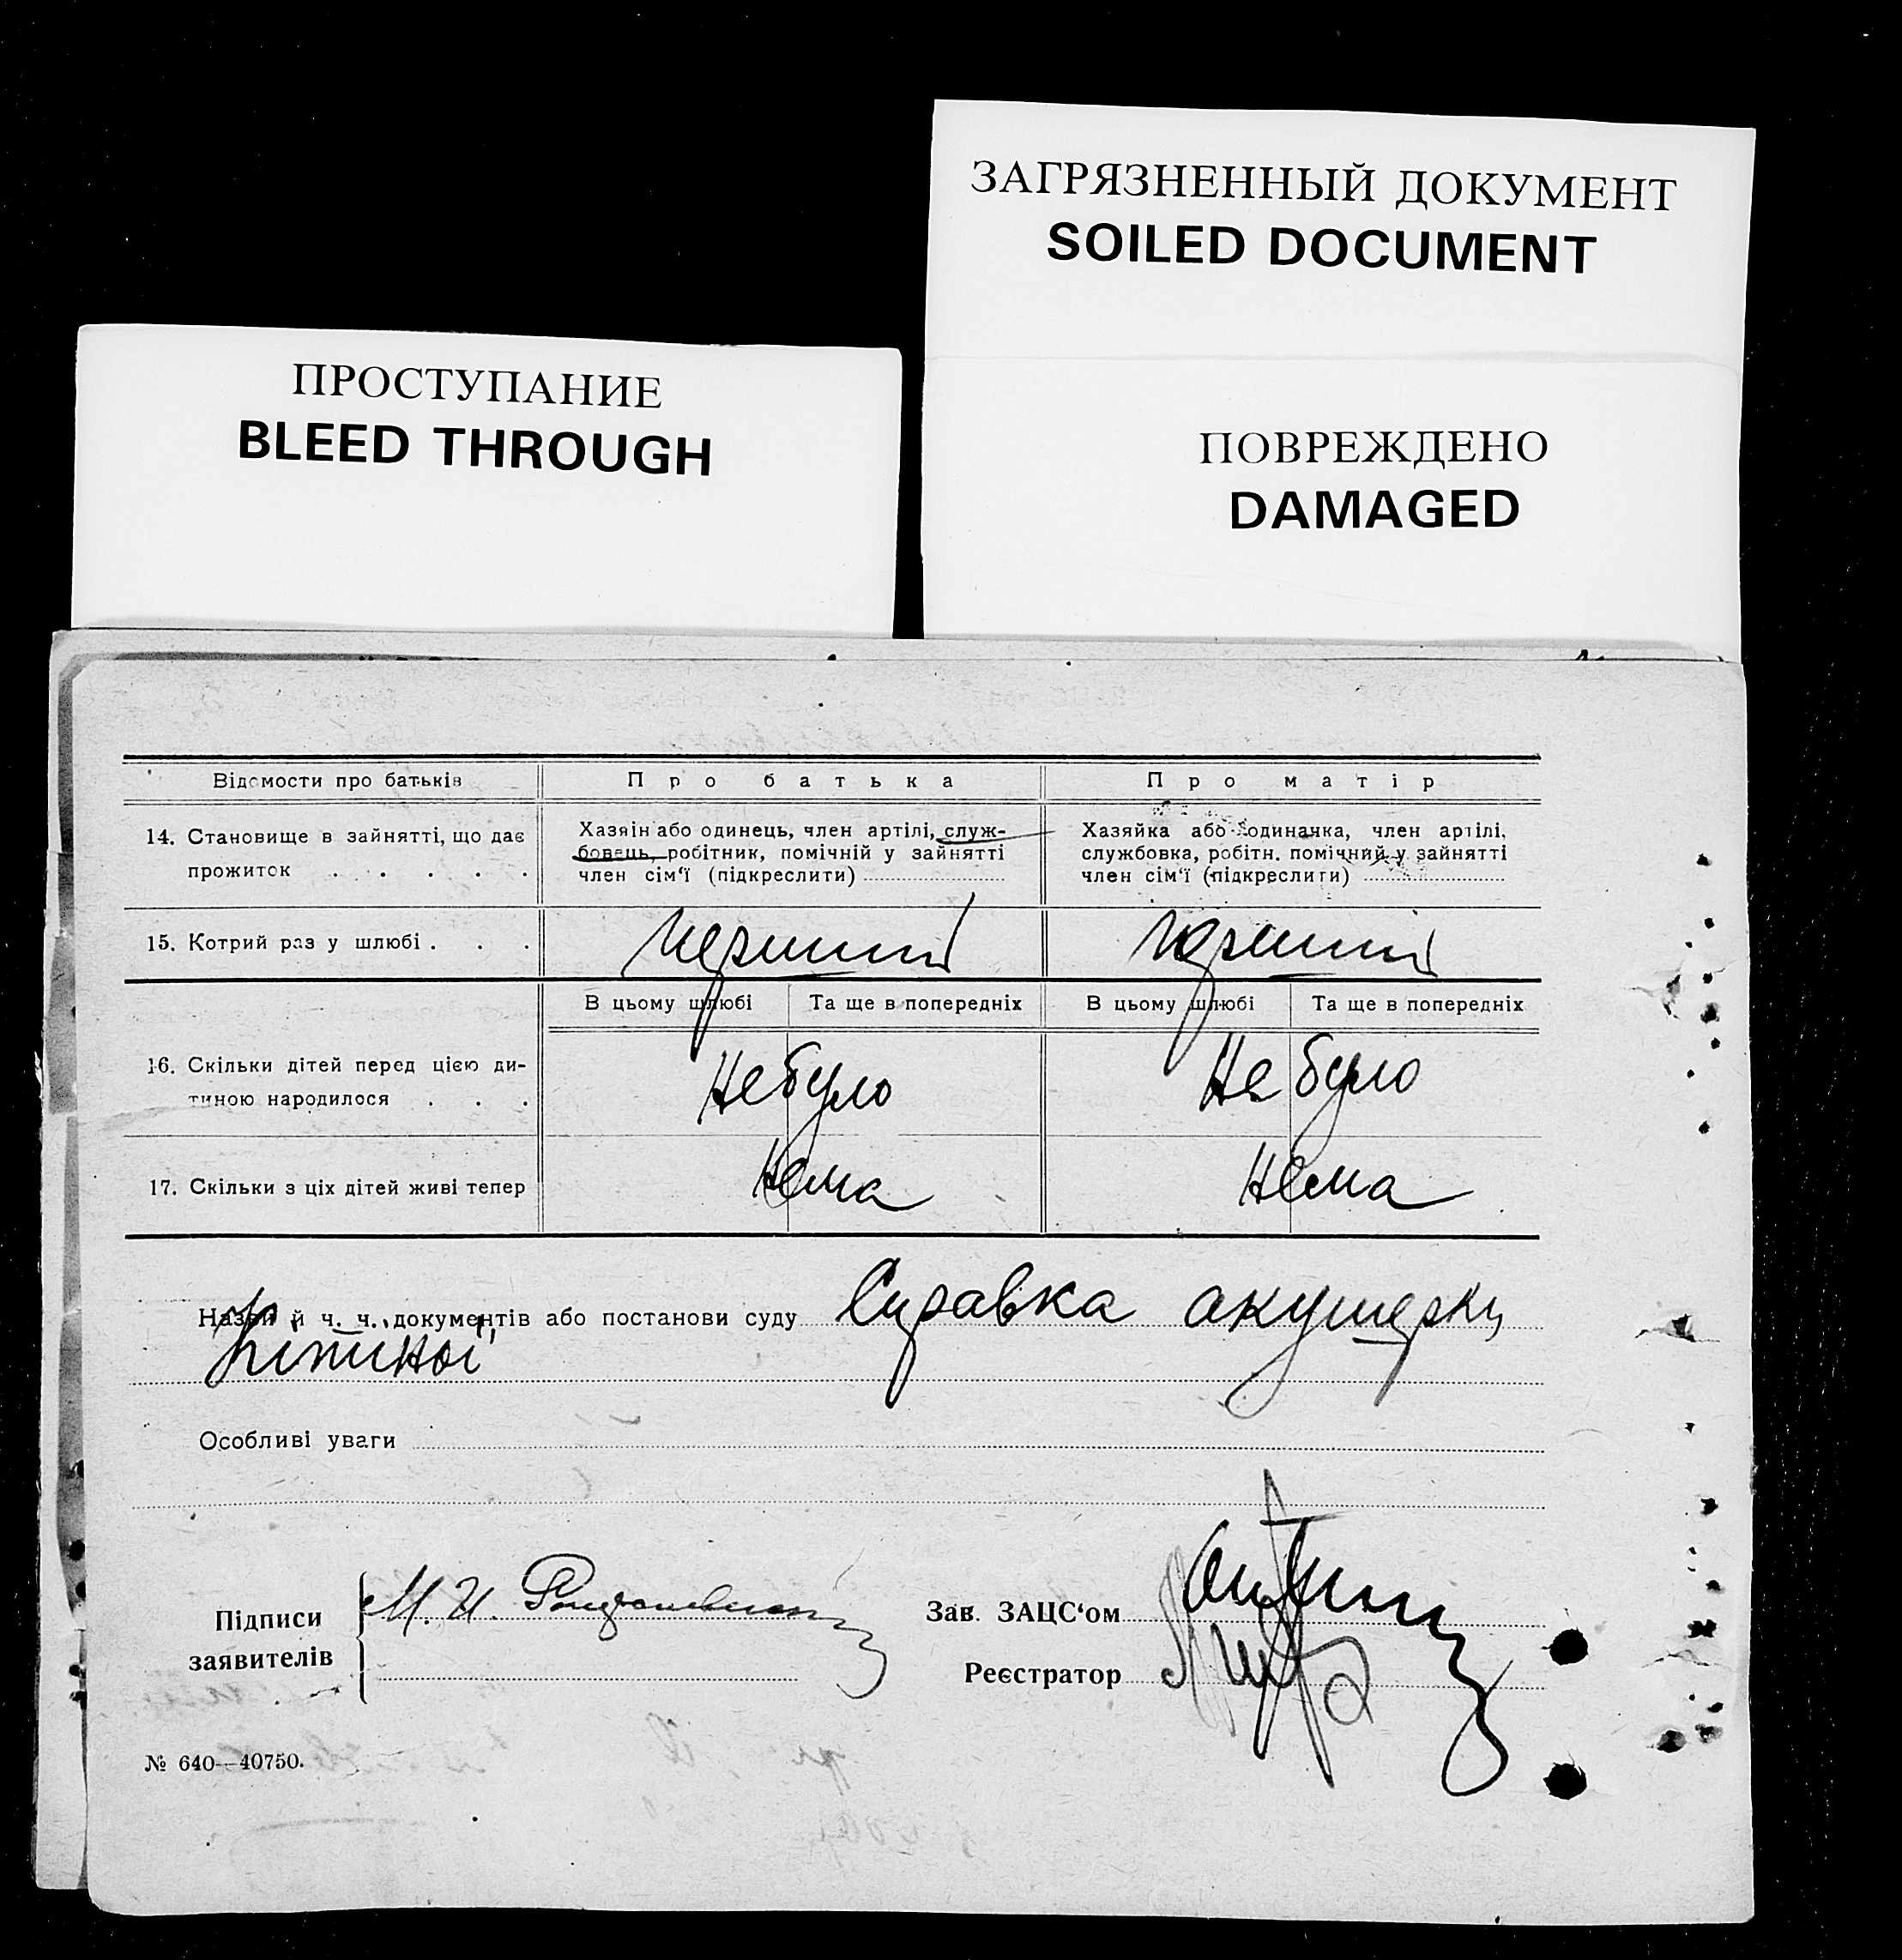 ЗАГРЯЗНЕННЫЙ ДОКУМЕНТ
SOILED DOCUMENT
ПРОСТУПАНИЕ
BLEED THROUGH
ПОВРЕЖДЕНО
DAMAGED
Відомости про батьків
Про батька
Про матір
14. Становище в зайнятті, що дає
прожиток . . . . .
Хазяін або одинець, член артілі, служ-
бовець, робітник, помічній у зайнятті
член сім'ї (підкреслити)
Хазяйка або одиначка, член артілі,
службовка, робітн. помічний у зайнятті
член сім'ї (підкреслити)
15. Котрий раз у шлюбі . . .
перший
перший
В цьому шлюбі
Та ще в попередніх
В цьому шлюбі
Та ще в попередніх
16. Скільки дітей перед цією ди-
тиною народилося . . .
Не було
Не було
17. Скільки з ціх дітей живі тепер
Нема
Нема
Назви й ч. ч. документів або постанови суду Справка акушерки
Особливі уваги
Підписи
заявителів
М. И.
Зав. ЗАЦС'ом
Реєстратор
№ 640—40750.